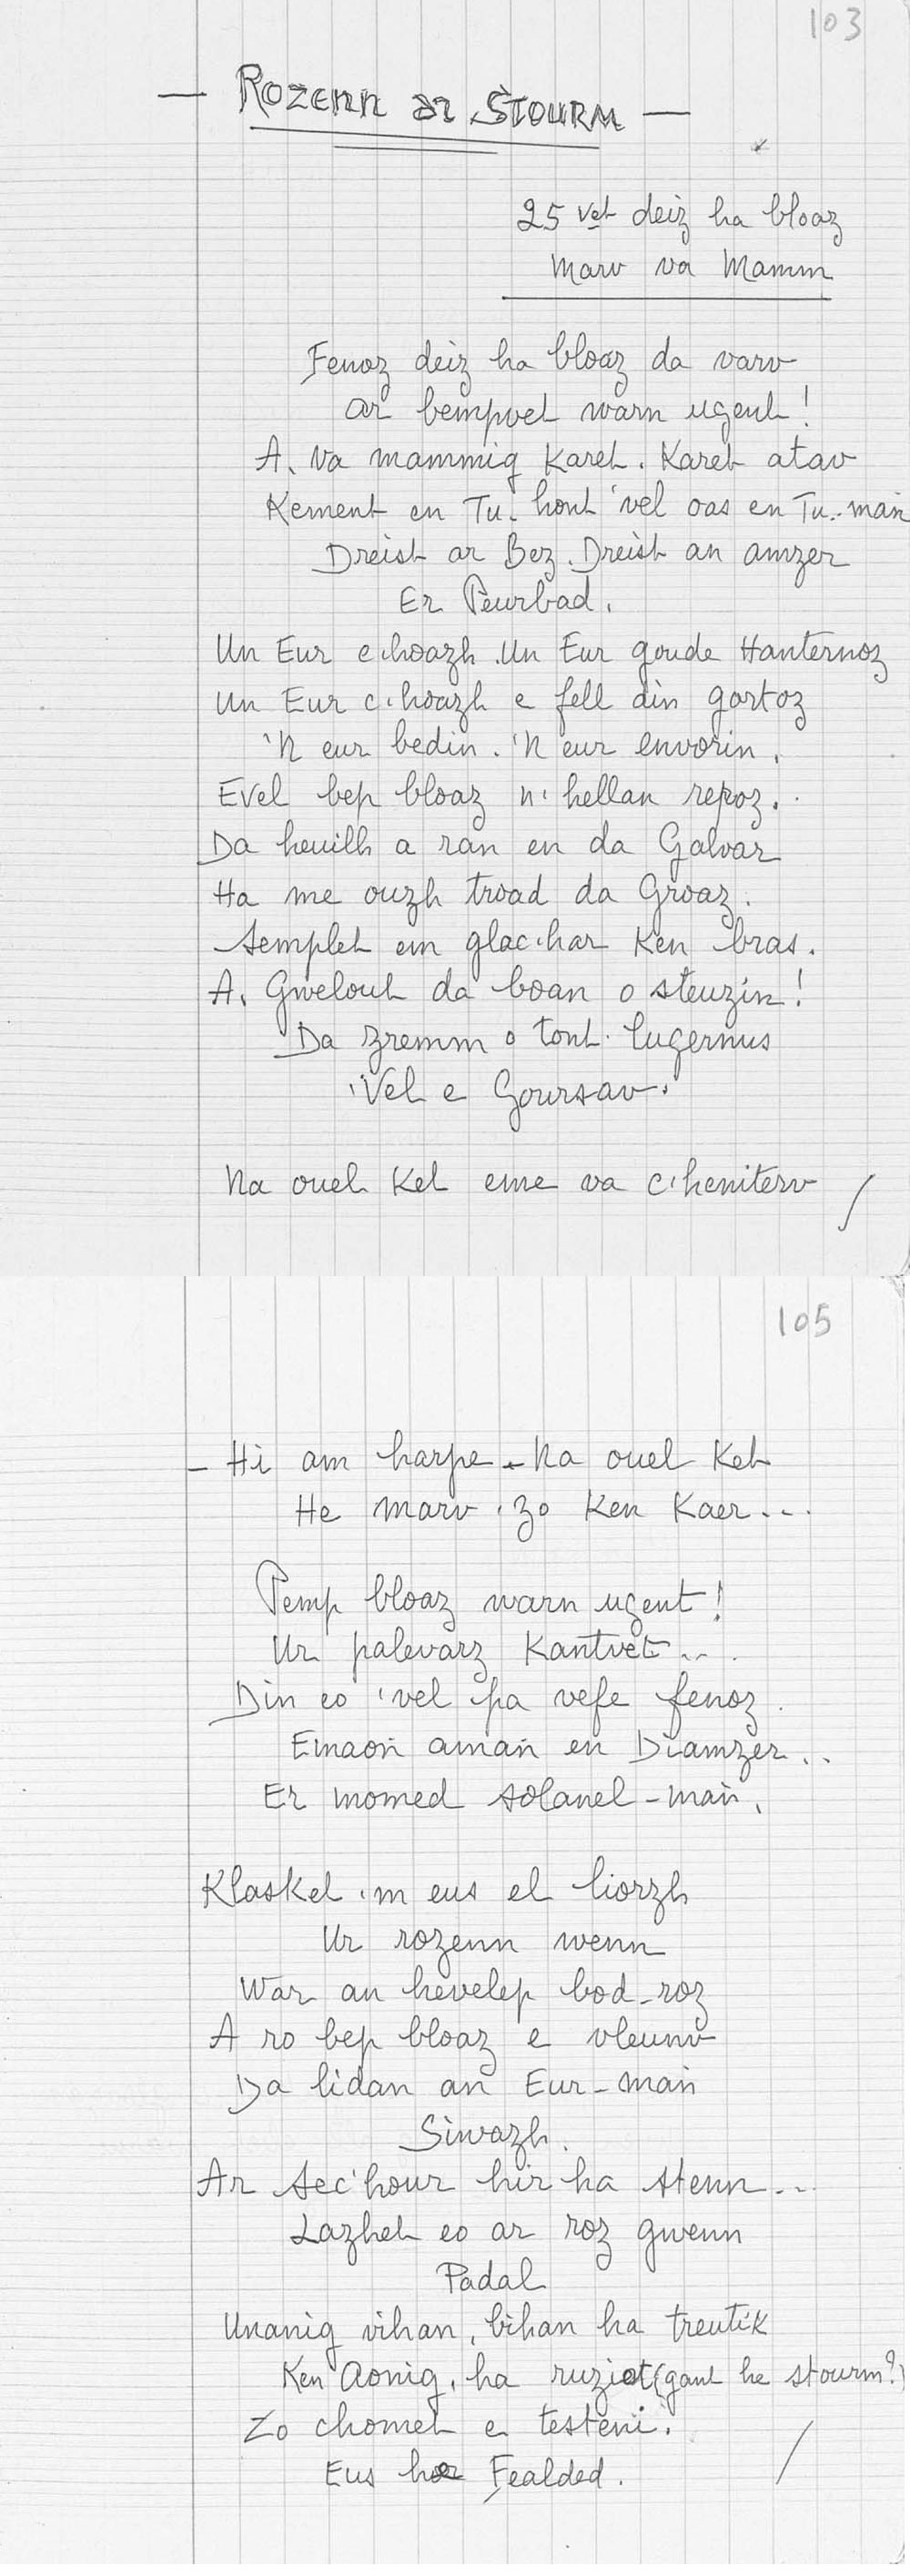 103
— Rozenn ar Stourm —
25 vet deiz ha bloaz
marv va Mamm
Fenoz deiz ha bloaz da varv
ar bempvet warn ugent !
A, va mammig Karet. Karet atav
Kement en Tu-hont 'vel oas en Tu-mañ
Dreist ar Bez. Dreist an amzer
Er Peurbad.
Un Eur c'hoazh. Un Eur goude Hanternoz
Un Eur c'hoazh e fell din gortoz
'N eur bedin. 'N eur envorin.
Evel bep bloaz n' hellan repoz.
Da heuilh a ran en da Galvar
Ha me ouzh troad da Groaz.
Semplet em glac'har Ken bras.
A, Gwelout da boan o steuziñ !
Da zremm o tont lugernus
'Vel e Goursav.
Na ouel Ket eme va c'heniterv
/
105
_ Hi am harpe - Na ouel Ket
He marv 'zo Ken Kaer...
Pemp bloaz warn ugent !
Ur palevarz Kantvet...
Din eo 'vel pa vefe fenoz.
Emaon amañ en Diamzer..
Er momed solanel-mañ.
Klasket 'm eus el liorzh
Ur rozenn wenn
War an hevelep bod-roz
A ro bep bloaz e vleunv
Da lidan an Eur-mañ
Siwazh.
Ar Sec'hour hir ha stenn...
Lazhet eo ar roz gwenn
Padal
Unanig vihan, bihan ha treutik
Ken Aonig, ha ruziet (gant he stourm ?)
Zo chomet e testeni.
Eus her Fealded.
/